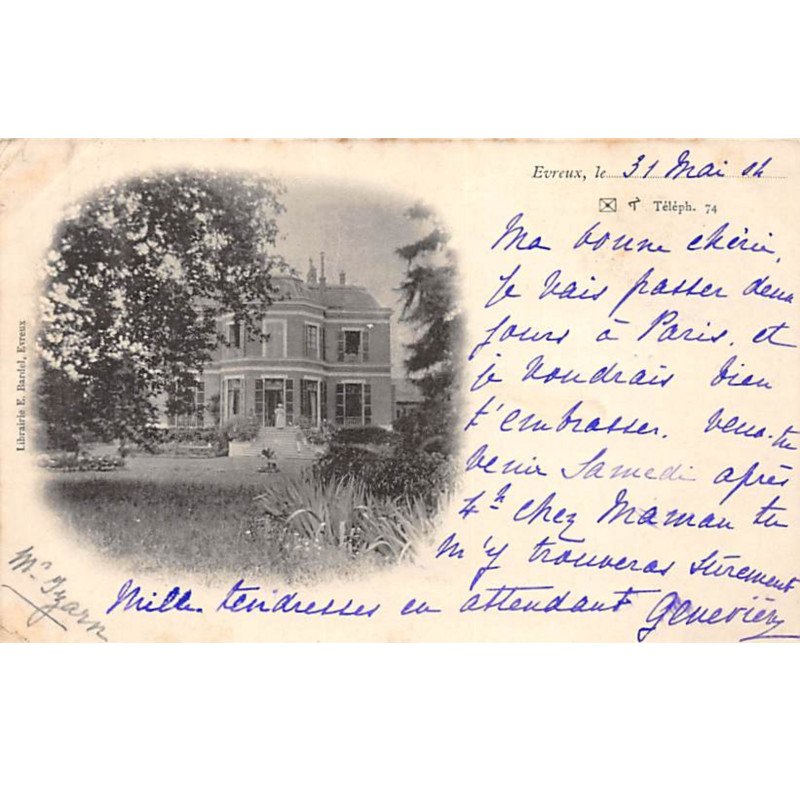 Evreux, le 31 Mai 04
Téléph. 74
Ma bonne chérie,
Je vais passer deux
jours à Paris. et
je voudrais bien
t'embrasser. Veux-tu
venir Samedi après
4h chez Maman tu
m'y trouveras sûrement
Mille tendresses en attendant Geneviève
Librairie E. Bardel, Evreux